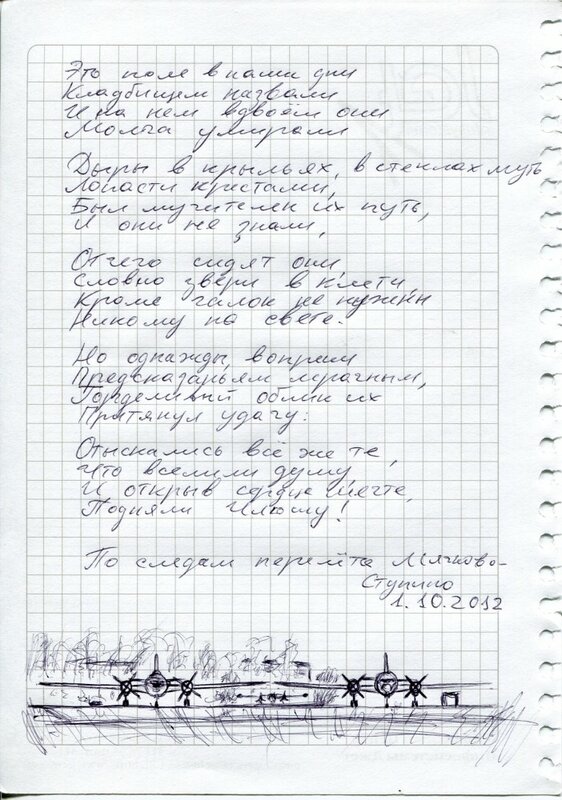 Это поле в наши дни
Кладбищем назвали
И на нем вдвоём они
Молча умирали
Дыры в крыльях, в стеклах муть
Лопасти крестами,
Был мучителен их путь,
И они не знали,
Отчего сидят они,
Словно звери в клети,
Кроме галок не нужны
Никому на свете.
Но однажды, вопреки
Предсказаньям мрачным,
Горделивый облик их
Притянул удачу:
Отыскались всё же те,
Что вселили душу
И открыв сердце мечте,
Подняли Илюшу!
По следам перелёта Мячково-
Ступино
1.10.2012